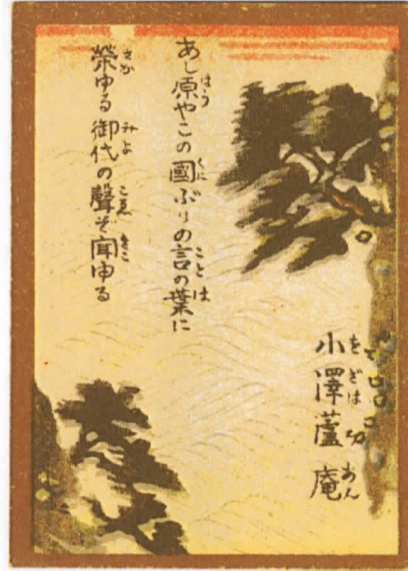 小澤蘆庵
あし原やこの國ぶりの言の葉に
榮ゆる御代の聲ぞ聞ゆる